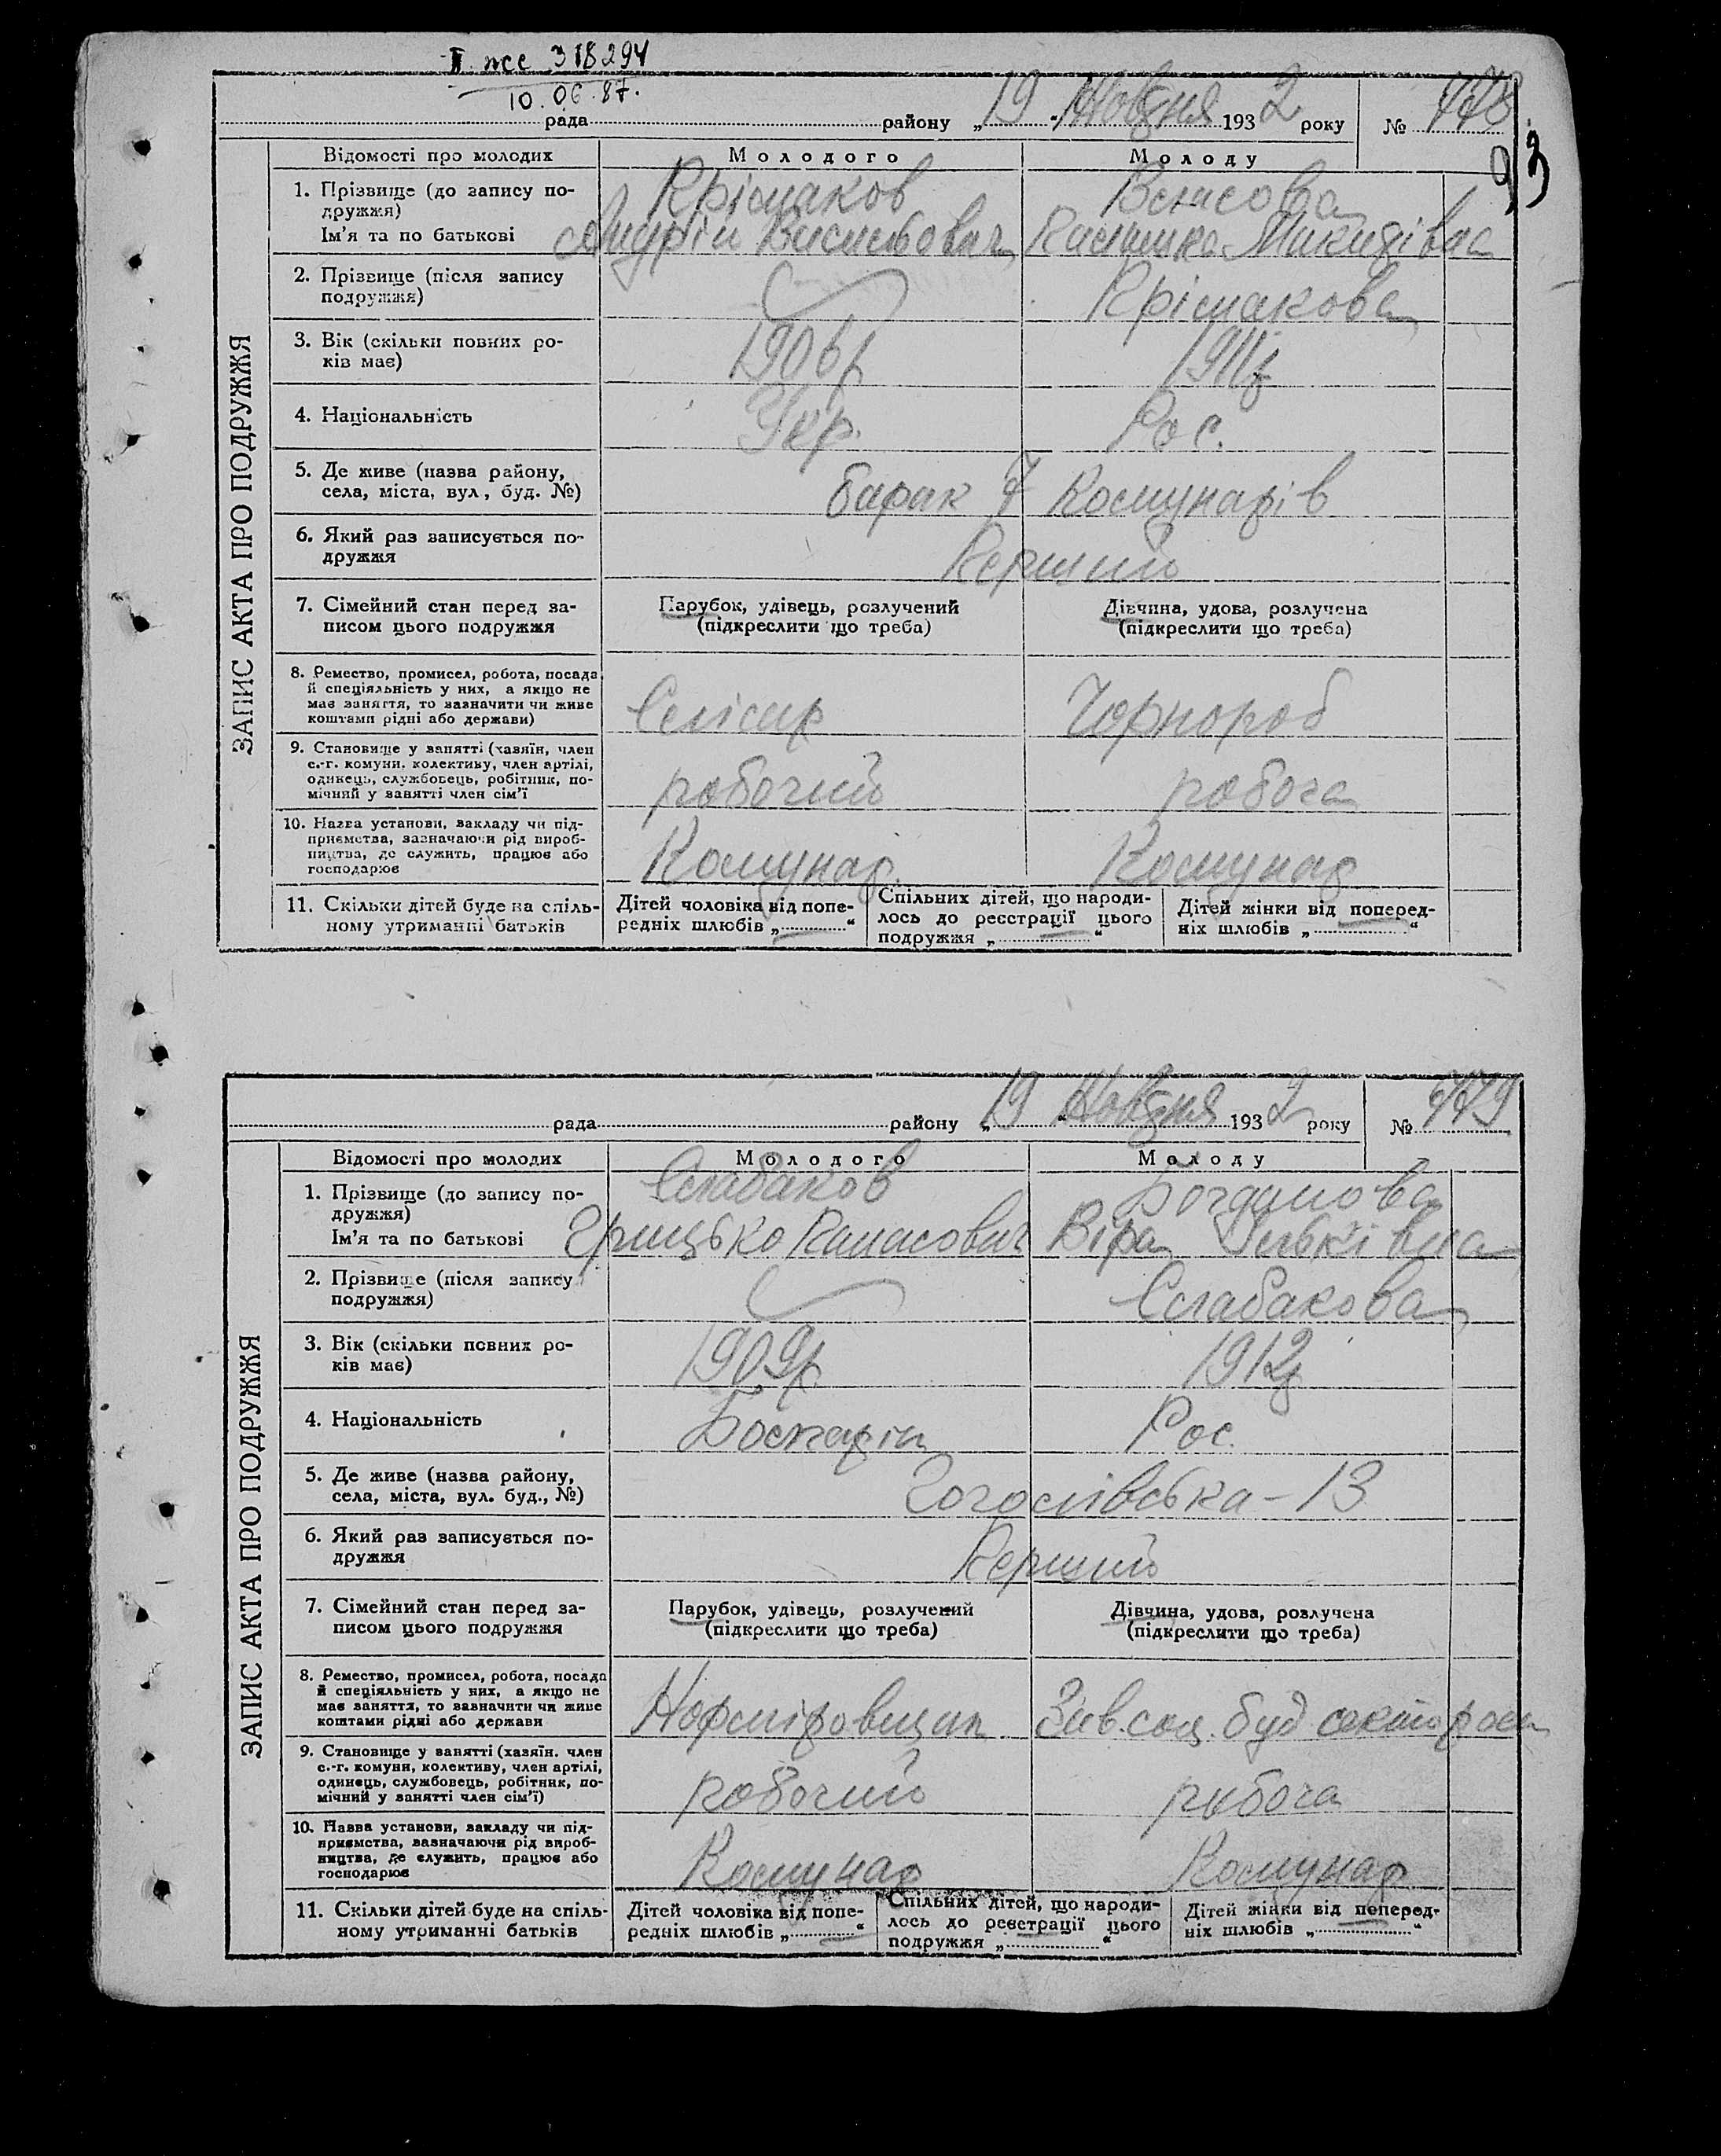 II жсе 318294
10.06.87.
рада районy „19" Жовтня 1932 року № 778
93
ЗАПИС АКТА ПРО ПОДРУЖЖЯ
Відомості про молодих Молодого Молоду
1. Прізвище (до запису по-
дружжя) Крісмаков Власова
Ім'я та по батькові Андрій Васильович Микитівна
2. Прізвище (після запису
подружжя) Крісмакова
3. Вік (скільки повних ро-
ків має) 1906р 1911р
4. Національність Укр. Рос.
5. Де живе (назва району,
села, міста, вул, буд. №) барак 7 Комунарів
6. Який раз записується по-
дружжя Перший
7. Сімейний стан перед за-
писом цього подружжя
Парубок, удівець, розлучений
(підкреслити що треба)
Дівчина, удова, розлучена
(підкреслити що треба)
8. Ремество, промисел, робота, посада
й спеціяльність у них, а якщо не
має заняття, то зазначити чи живе
коштами рідні або держави) Слісар Чорнороб
9. Становище у занятті (хазяїн, член
с.-г. комуни, колективу, член артілі,
одинець, службовець, робітник, по-
мічний у занятті член сім'ї робочий робоча
10. Назва установи, закладу чи під-
приємства, зазначаючи рід вироб-
ництва, де служить, працює або
господарює Комунар. Комунар
11. Скільки дітей буде на спіль-
ному утриманні батьків
Дітей чоловіка від попе-
редніх шлюбів „ — "
Спільних дітей, що народи-
лось до реєстрації цього
подружжя „ — "
Дітей жінки від поперед-
ніх шлюбів „ — "
рада району „19" Жовтня 1932 року № 779
ЗАПИС АКТА ПРО ПОДРУЖЖЯ
Відомості про молодих Молодого Молоду
1. Прізвище (до запису по-
дружжя) Слабаков Богданова
Ім'я та по батькові Грицько Панасович Віра Ільківна
2. Прізвище (після запису
подружжя) Слабакова
3. Вік (скільки повних ро-
ків має) 1909р 1912р
4. Національність Болгарин Рос.
5. Де живе (назва району,
села, міста, вул. буд., №) Гоголівська-13
6. Який раз записується по-
дружжя Перший
7. Сімейний стан перед за-
писом цього подружжя
Парубок, удівець, розлучений
(підкреслити що треба)
Дівчина, удова, розлучена
(підкреслити що треба)
8. Ремество, промисел, робота, посада
й спеціяльність у них, а якщо не
має заняття, то зазначити чи живе
коштами рідні або держави Норміровщик Зав.соц.буд сектором
9. Становище у занятті (хазяїн. член
с.-г. комуни, колективу, член артілі,
одинець, службовець, робітник, по-
мічний у занятті член сім'ї) робочий робоча
10. Назва установи, закладу чи під-
приємства, зазначаючи рід вироб-
ництва, де служить, працює або
господарює Комунар Комунар
11. Скільки дітей буде на спіль-
ному утриманні батьків
Дітей чоловіка від попе-
редніх шлюбів „ — "
Спільних дітей, що народи-
лось до реєстрації цього
подружжя „ — "
Дітей жінки від поперед-
ніх шлюбів „ "